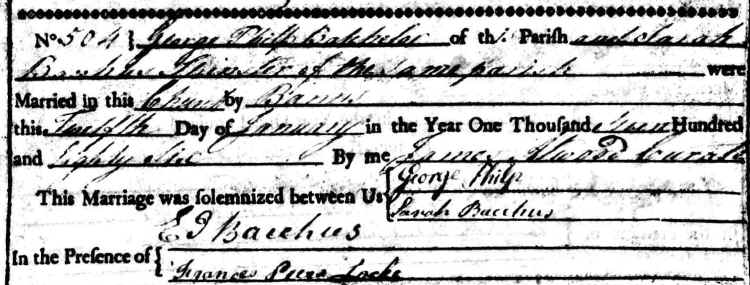 No. 504 } George Philp Batchelor of this Parish and Sarah
Bacchus Spinster of the same parish were
Married in this Church by Banns
this Twelfth Day of January in the Year One Thousand Seven Hundred
and Eighty Six By me James Atwood Curate
This Marriage was solemnized between Us { George Philp
Sarah Bacchus
In the Presence of { E J Bacchus
Frances Locke